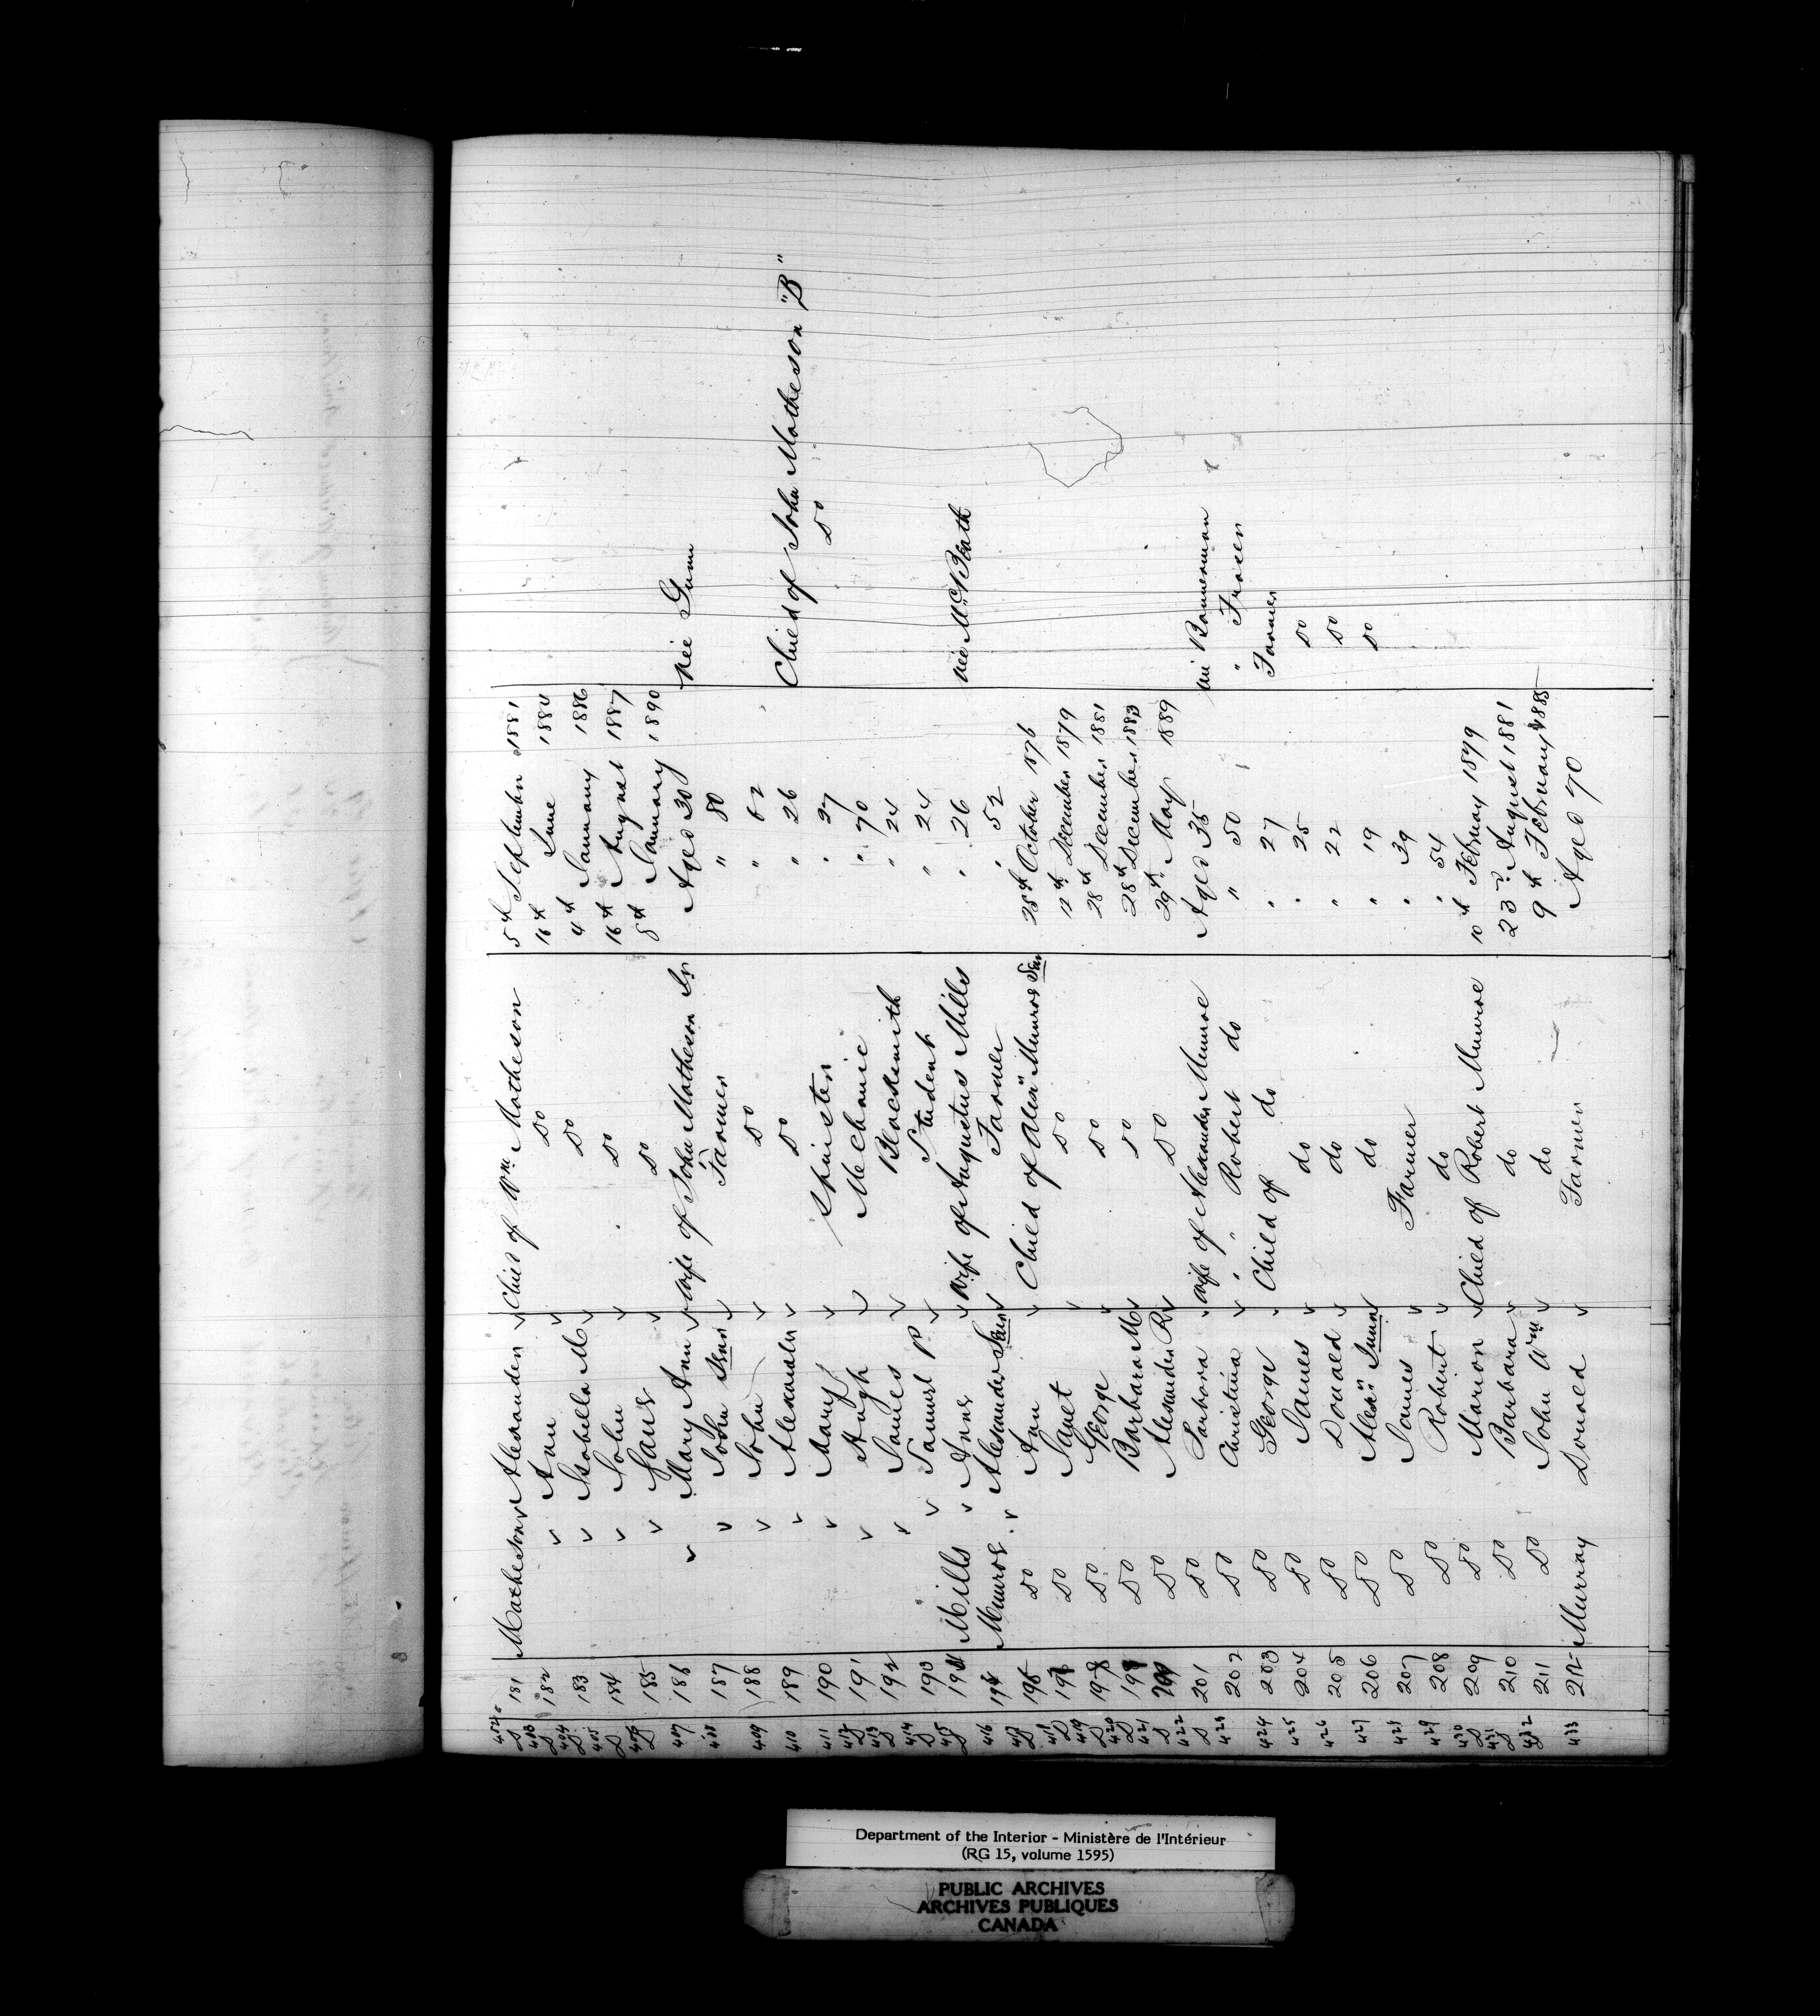 402 181 Matheson Alexander Child of Wm Matheson 5th September 1881
403 182 Ann Do 16th June 1884
404 183 Isabella M Do 4th January 1886
405 184 John Do 16th August 1887
406 185 Do 8th January 1890
407 186 Mary Ann Wife of John Matheson Sr Aged 30 née Gunn
408 187 John Senr Farmer " 80
409 188 John Do "
410 189 Alexander Do " 26
411 190 Mary Spinster " 27
412 191 Hugh Mechanic " 70
413 192 James Blacksmith " 24 Child of John Matheson "B"
414 193 Samuel P Student " 24 Do
415 Mills Annie Wife of Augustus Mills " 26 née McBeath
416 Munroe Alexander Senr Farmer " 52
417 Do Ann Child of Alexr Munroe Senr 25th October 1876
418 Do Janet Do 12th December 1879
419 Do George Do 28th December 1881
420 Do Barbara M Do 28th December 1883
421 Do Alexander R Do 29th May 1889
422 201 Do Barbara Wife of Alexander Munroe Aged 35 née Bannerman
423 202 Do Christina " " Robert do " 50 " Fraser
424 203 Do George Child of do " 27 Farmer
425 204 Do James do " 25 Do
426 205 Do Donald do " 22 Do
427 206 Do Alexr Junr do " 19 Do
428 207 Do James Farmer " 39
429 208 Do Robert do " 54
430 209 Do Marion Child of Robert Munroe 10th February 1879
431 210 Do Barbara do 23rd August 1881
432 211 Do John Wm do 9th February 1885
433 212 Murray Donald Farmer Aged 70
Department of the Interior - Ministère de l'Intérieur
(RG 15, volume 1595)
PUBLIC ARCHIVES
ARCHIVES PUBLIQUES
CANADA